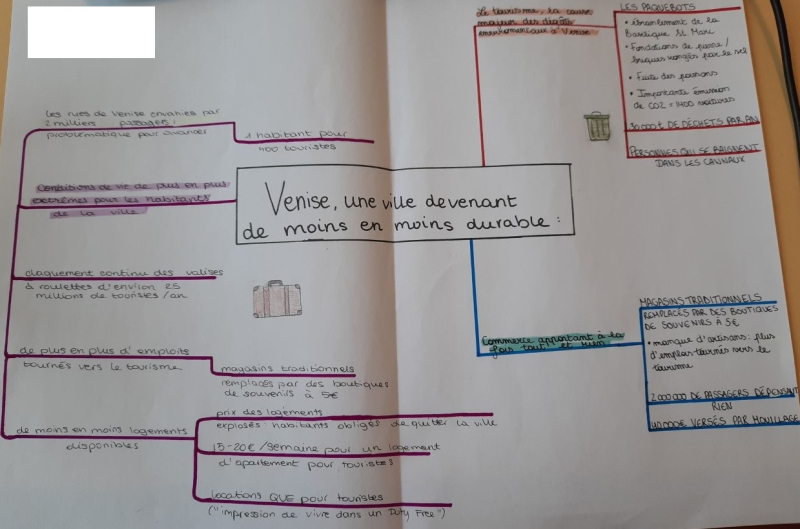 Venise, une ville devenant
de moins en moins durable :
Le tourisme, la cause
majeur des dégâts
environnementaux à Venise
LES PAQUEBOTS
• ébranlement de la
Basilique St Marc
• Fondations de pierre /
briques rongés par le sel
• Fuite des poissons
• Importante émission
de CO2 = 1400 voitures
DE DÉCHETS PAR AN
PERSONNES QUI SE BAIGNENT
DANS LES CANNAUX
Commerce apportant à la
fois "tout" et rien
MAGASINS TRADITIONNELS
REMPLACÉS PAR DES BOUTIQUES
DE SOUVENIRS À 5€
• manque d'artisans : plus
d'emplois tournés vers le
tourisme
2 000 000 DE PASSAGERS DÉPENSANT
RIEN
40 000€ VERSÉS PAR MOUILLAGE
les rues de Venise envahies par
2 milliers passages :
problématique pour avancer
1 habitant pour
400 touristes
Conditions de vie de plus en plus
extrêmes pour les habitants
de la ville
claquement continu des valises
à roulettes d'environ 25
millions de touristes/an
de plus en plus d'emploits
tournés vers le tourisme
magasins traditionnels
remplacés par des boutiques
de souvenirs à 5€
de moins en moins logements
disponibles
prix des logements
explosés : habitants obligés de quitter la ville
15-20€/semaine pour un logement
d'apartement pour touristes
locations QUE pour touristes
("impression de vivre dans un Duty Free")